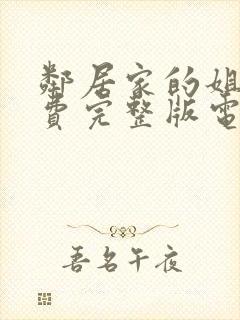 鄰居家的姐
費完整版電
吾名午夜